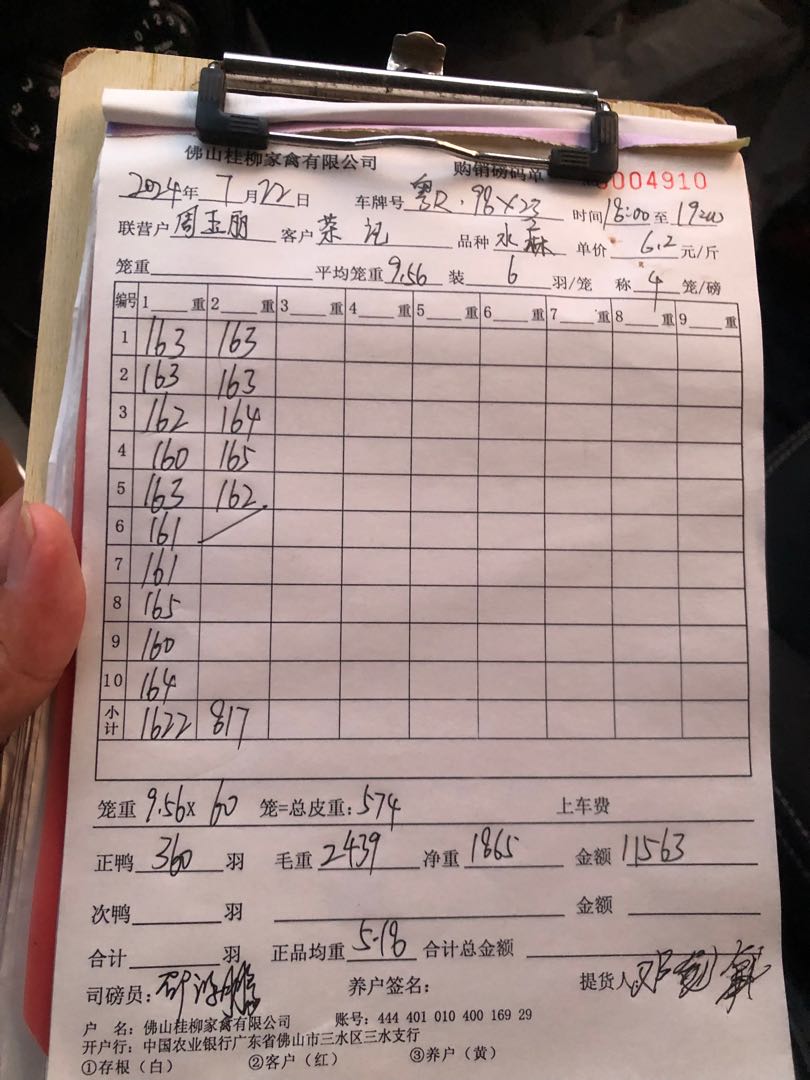 佛山桂柳家禽有限公司 购销磅码单 0004910
2024年 7月22日 车牌号 粤R.98X23 时间18:00至19:20
联营户 周玉丽 客户 荣记 品种 水 单价 6.2 元/斤
笼重 平均笼重 9.56 装 6 羽/笼 称 4 笼/磅
编号 1 重 2 重 3 重 4 重 5 重 6 重 7 重 8 重 9 重
1 163 163
2 163 163
3 162 164
4 160 165
5 163 162
6 161
7 161
8 165
9 160
10 164
小计 1622 817
笼重 9.56X 60 笼=总皮重:574 上车费
正鸭 360 羽 毛重 2439 净重 1865 金额 11563
次鸭 羽 金额
合计 羽 正品均重 5.18 合计总金额
司磅员: 养户签名: 提货人:邓
户 名:佛山桂柳家禽有限公司 账号:444 401 010 400 169 29
开户行:中国农业银行广东省佛山市三水区三水支行
①存根(白) ②客户(红) ③养户(黄)